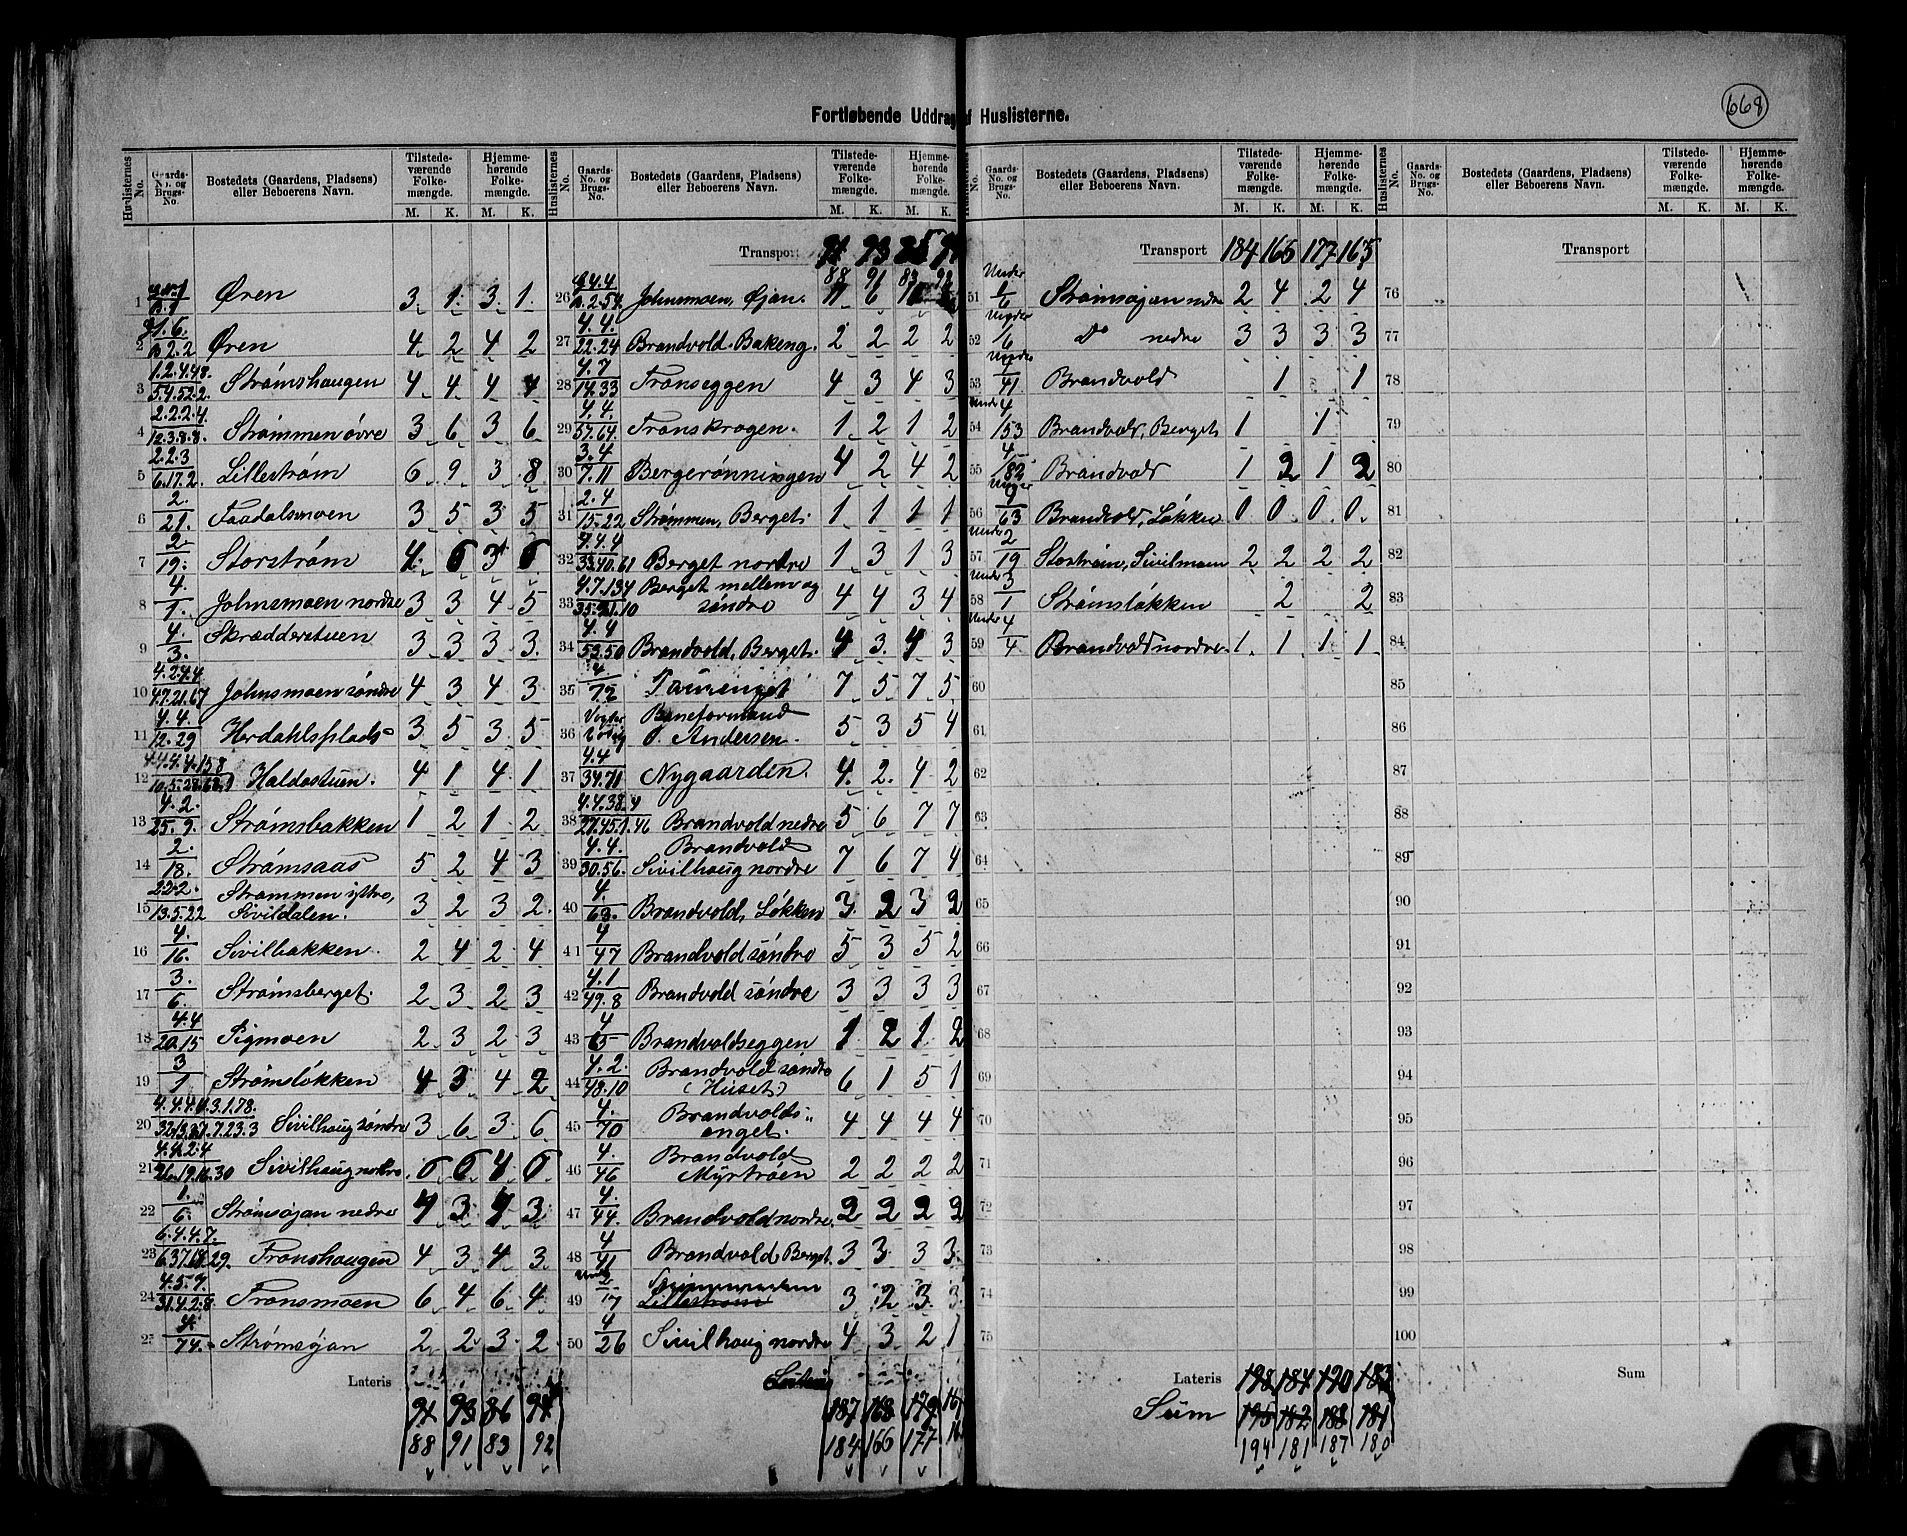 668
Fortløbende Uddrag f Huslisterne.
Huslisternes No. Gaards-No. og Brugs-No. Bostedets (Gaardens, Pladsens) eller Beboerens Navn. Tilstedeværende Folkemængde. M. K. Hjemmehørende Folkemængde. M. K.
1 Øren 3 1 3 1
2 Øren 4 2 4 2
3 1.2.4.48. Strømshaugen 4 4 4 4
4 2.2.2.4. Strømmen øvre 3 6 3 6
5 2.2.3 6.17.2. Lillestrøm 6 9 3 8
6 2. 21. Faadalsmoen 3 5 3 5
7 2. 19. Storstrøm 4 6 3 6
8 4 1. Johnsmoen nordre 3 3 4 5
9 4. 3. Skrædderstuen 3 3 3 3
10 4.2.4.4 47.21.67 Johnsmoen søndre 4 3 4 3
11 4.4. 12.29 Herdahlsplads 3 5 3 5
12 Haldostuen. 4 1 4 1
13 4.2. 25.9. Strømsbakken 1 2 1 2
14 2. 18. Strømsaas 5 2 4 3
15 2.2.2. 13.5.22 Strømmen ytre, Sivildalen. 3 2 3 2
16 4. 16. Sivilbakken. 2 4 2 4
17 3. 6. Strømsberget. 2 3 2 3
18 4.4 20.15 Sigmoen 2 3 2 3
19 3 1 Strømsløkken 4 3 4 2
20 Sivilhaug søndre 3 6 3 6
21 4.4.2.4 Sivilhaug nordre 6 6 4 6
22 1. 6. Strømsøjan nedre 4 3 4 3
23 6.4.4.7. Fronshaugen 4 3 4 3
24 4.5.7. 31.4.2.8 Fronsmoen 6 4 6 4
25 4. 74. Strømsøjan 2 2 3 2
Lateris 94 93 86 94
88 91 83 92
Transport
88 91 83 92
26 4.4.4 Johnsmoen, Øjan. 11 6
27 4.4. 22.24 Brandvold. Bakeng. 2 2 2 2
28 4.7 14.33 Fronseggen 4 3 4 3
29 4.4. 57.64. Fronskrogen. 1 2 1 2
30 3.4 7.11 Bergerønningen 4 2 4 2
31 2.4 15.22 Strømmen, Berget. 1 1 1 1
32 4.4.4 33.40.61 Berget nordre 1 3 1 3
33 4.7.134 Berget mellem og søndre 4 4 3 4
34 4.4 53.50 Brandvold, Berget. 4 3 4 3
35 4 72 7 5 7 5
36 Baneformand Andersen. 5 3 5 4
37 4.4 34.71 Nygaarden. 4 2 4 2
38 4.4.38.4 27.45.1.46 Brandvold nedre 5 6 7 7
39 4.4. 30.56. Brandvold Sivilhaug nordre 7 6 7 4
40 4. 63. Brandvold, Løkken 3 2 3 2
41 4 47 Brandvold søndre 5 3 5 2
42 4.1 49.8 Brandvold søndre 3 3 3 3
43 4 65 Brandvoldseggen 1 2 1 2
44 4.2. 48.10 Brandvold søndre (Huset) 6 1 5 1
45 4. 70 Brandvoldsenget. 4 4 4 4
46 4. 46 Brandvold Myrtrøen 2 2 2 2
47 4. 44. Brandvold nordre. 2 2 2 2
48 4 41 Brandvold Berget. 3 3 3 3
49 Under 2 17 Lillestrøm 3 2 3 3
50 4 26 Sivilhaug nordre 4 3 2 1
187 168 179 167
184 166 177 16
Transport 184 166 177 165
51 Under 1 6 Strømsøjan nedre 2 4 2 4
52 Under 1/6 do nedre 3 3 3 3
53 Under 41 Brandvold 1 1
54 Under 4 153 Brandvold, Berget 1 1
55 4 182 Brandvold 1 2 1 2
56 Under 63 Brandvold, Løkken 0 0 0 0
57 Under 2 19 Storstrøm, Sivilmoen 2 2 2 2
58 Under 3 1 Strømsløkken 2 2
59 Under 4 4 Brandvold nordre. 1 1 1 1
60
61
62
63
64
65
66
67
68
69
70
71
72
73
74
75
Lateris 198 184 190 183
Sum 195 182 188 181
194 181 187 180
Transport
76
77
78
79
80
81
82
83
84
85
86
87
88
89
90
91
92
93
94
95
96
97
98
99
100
Sum